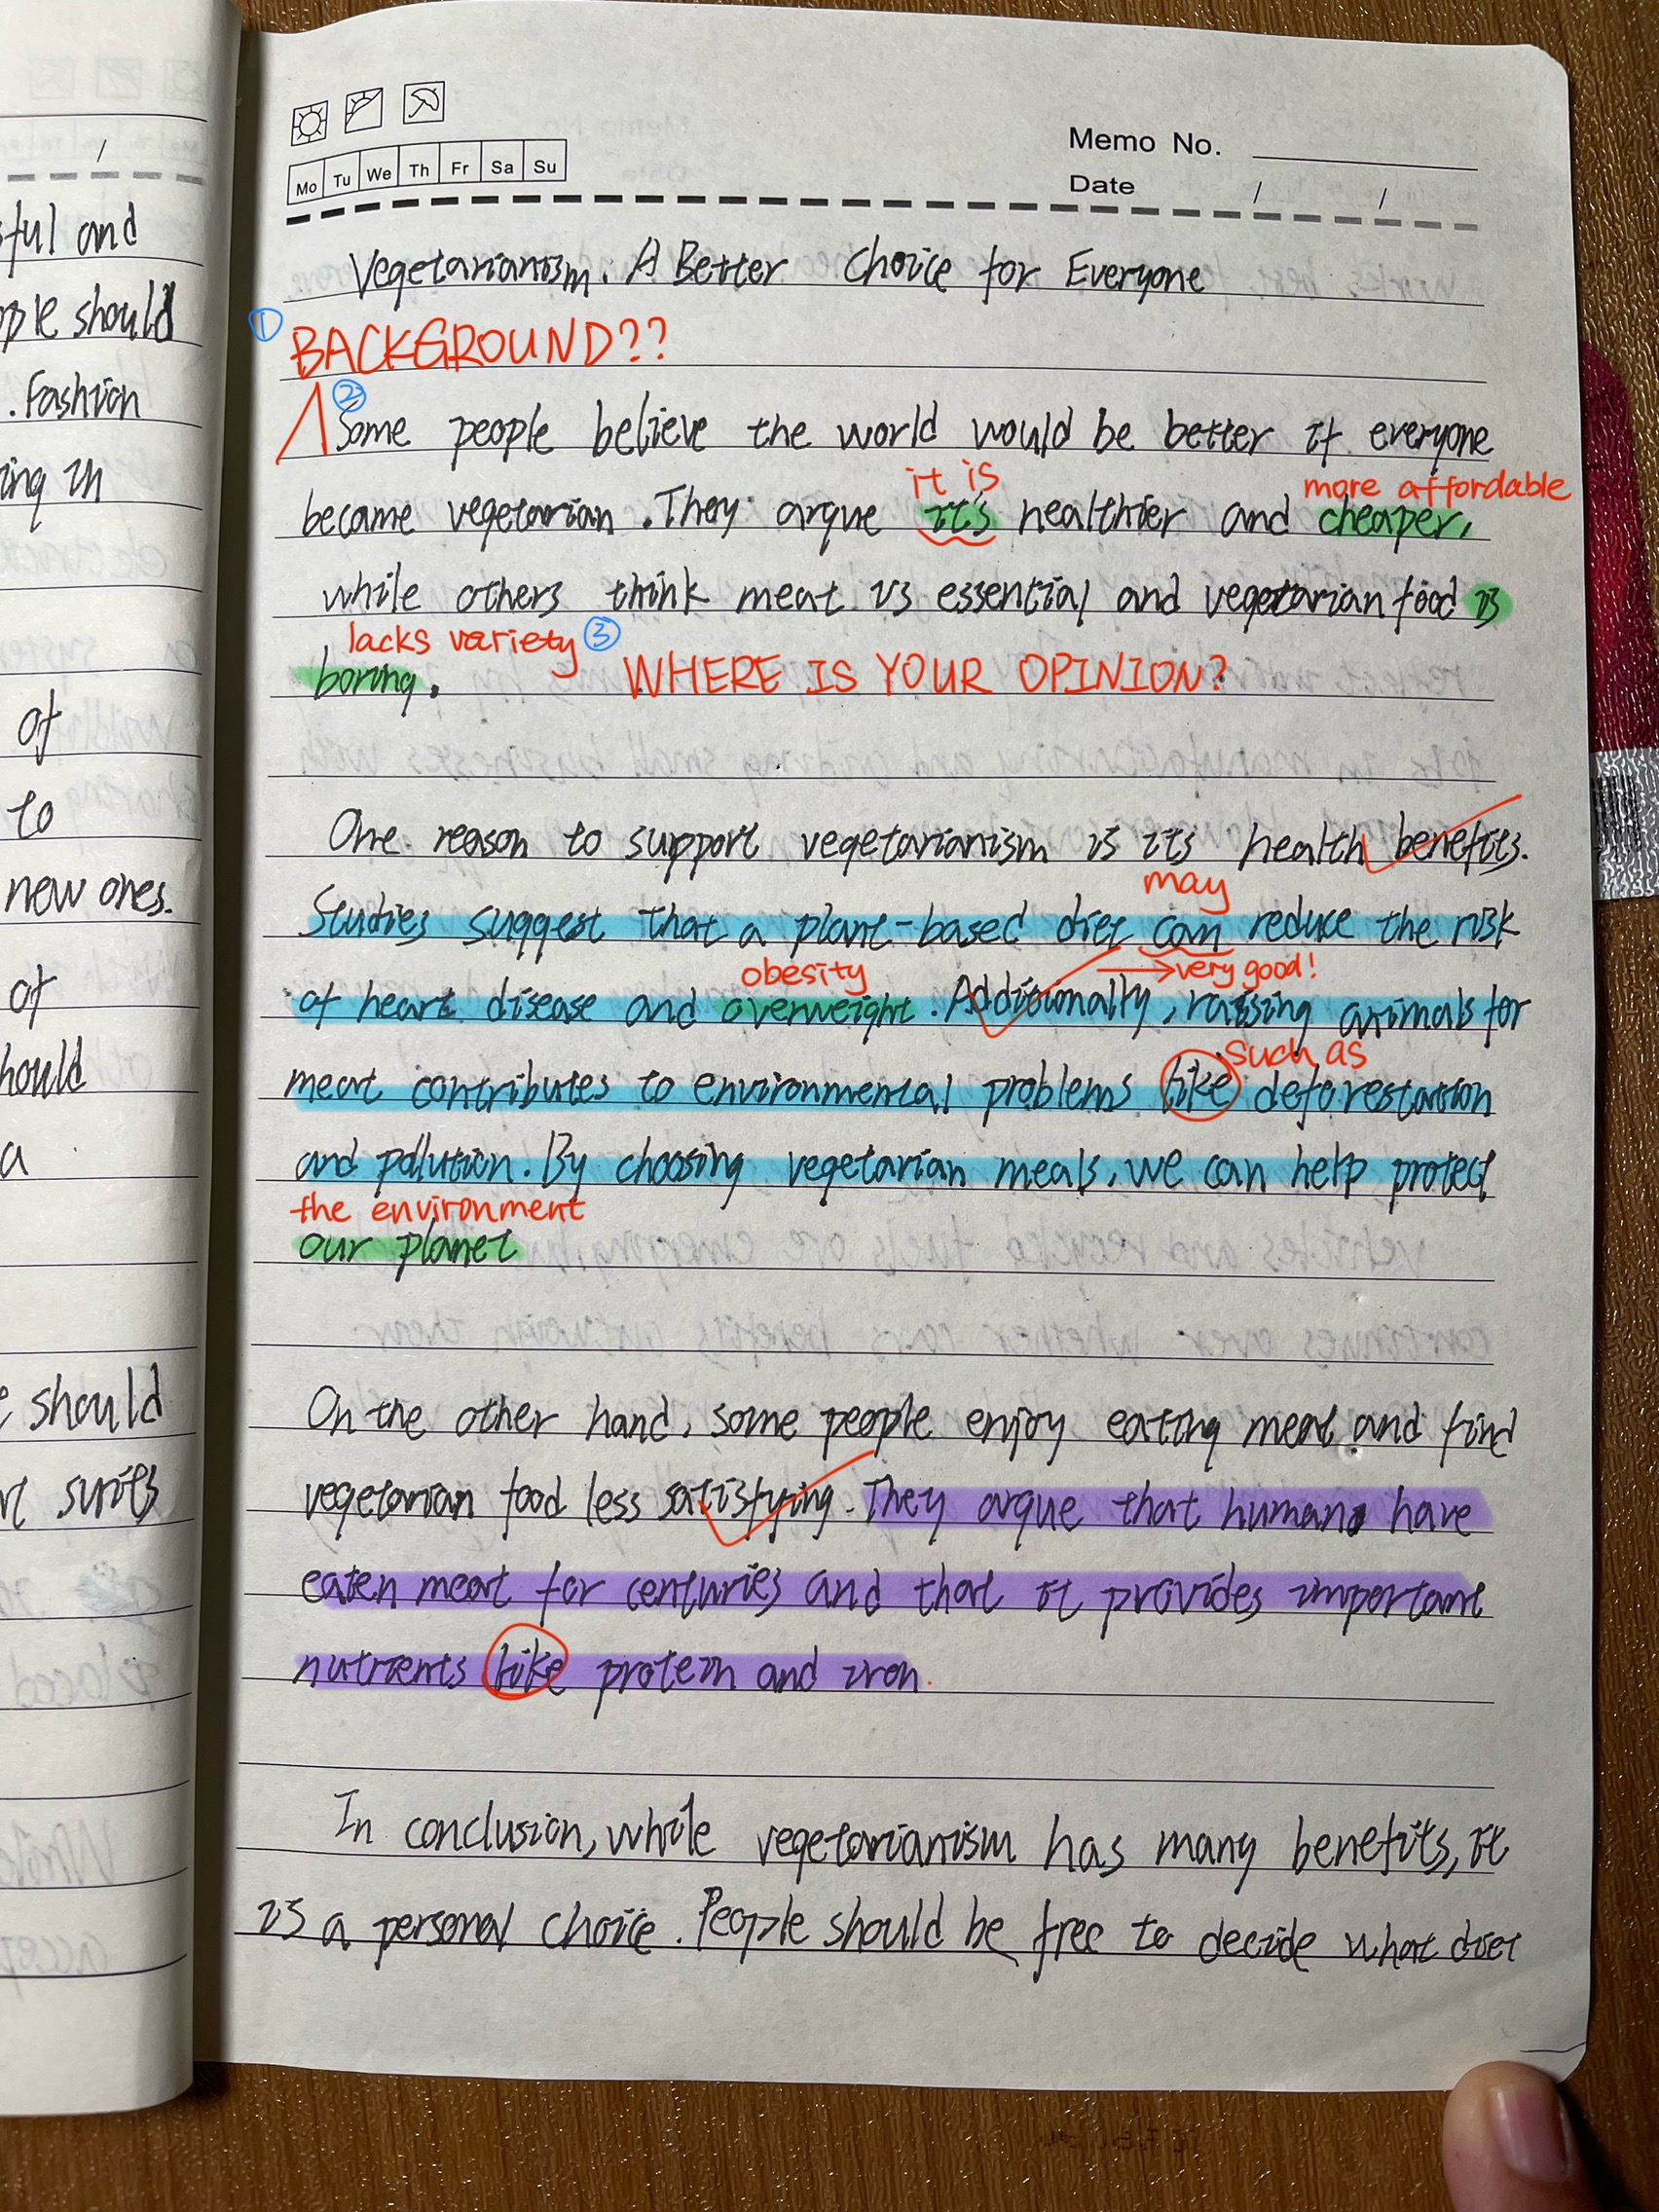 /
ful and
ple should
. Fashion
ing in
of
to
new ones.
of
hould
a
should
suits
Mo Tu We Th Fr Sa Su
Memo No.
Date / /
Vegetarianism: A Better Choice for Everyone
① BACKGROUND??
②
Some people believe the world would be better if everyone
it is more affordable
became vegetarian. They argue it's healthier and cheaper,
while others think meat is essential and vegetarian food is
lacks variety ③
boring. WHERE IS YOUR OPINION?
One reason to support vegetarianism is its health benefits.
may
Studies suggest that a plant-based diet can reduce the risk
obesity →very good!
of heart disease and overweight. Additionally, raising animals for
such as
meat contributes to environmental problems like deforestation
and pollution. By choosing vegetarian meals, we can help protect
the environment
our planet
On the other hand, some people enjoy eating meat and find
vegetarian food less satisfying. They argue that humans have
eaten meat for centuries and that it provides important
nutrients like protein and iron.
In conclusion, while vegetarianism has many benefits, it
is a personal choice. People should be free to decide what diet